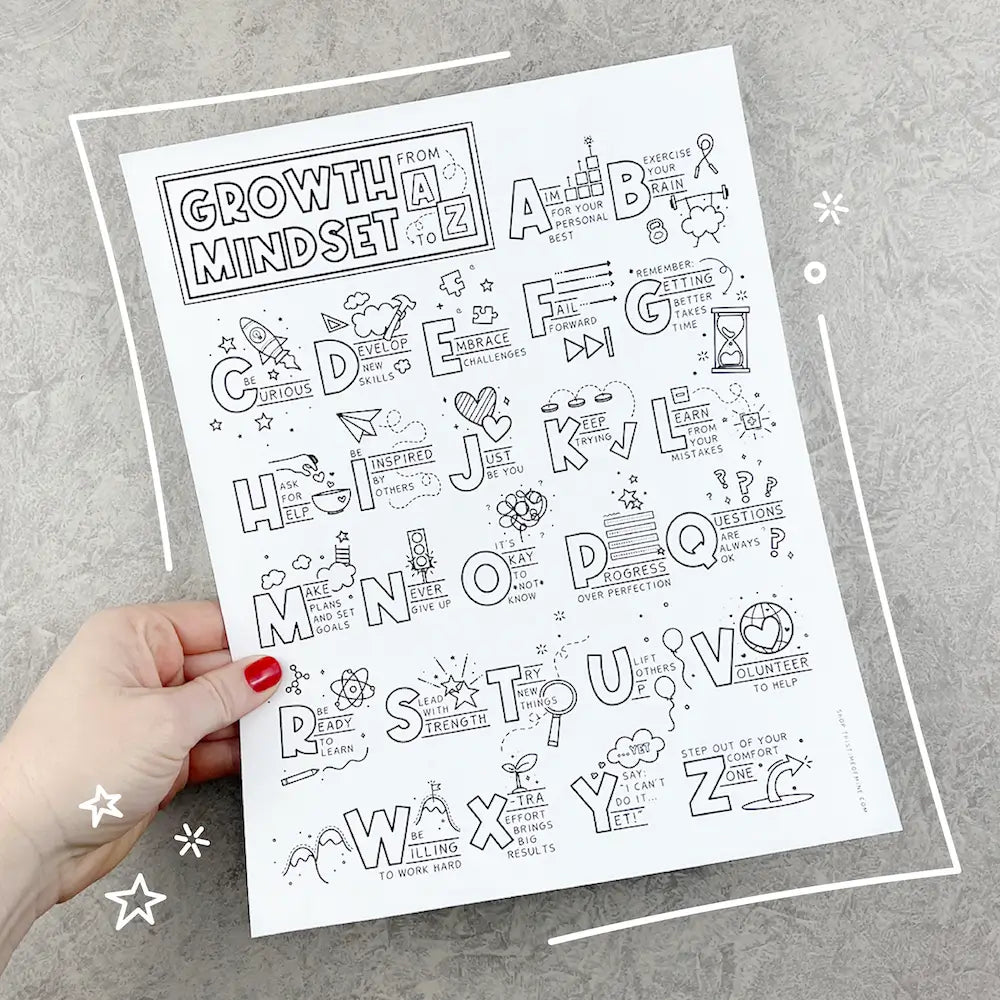 GROWTH FROM A
MINDSET TO Z
AIM
FOR YOUR
PERSONAL
BEST
EXERCISE
YOUR
BRAIN
BE
CURIOUS
DEVELOP
NEW
SKILLS
EMBRACE
CHALLENGES
FAIL
FORWARD
REMEMBER:
GETTING
BETTER
TAKES
TIME
ASK
FOR
HELP
BE
INSPIRED
BY
OTHERS
JUST
BE YOU
KEEP
TRYING
LEARN
FROM
YOUR
MISTAKES
MAKE
PLANS
AND SET
GOALS
NEVER
GIVE UP
IT'S
OKAY
TO
NOT
KNOW
PROGRESS
OVER PERFECTION
QUESTIONS
ARE
ALWAYS
OK
BE
READY
TO
LEARN
LEAD
WITH
STRENGTH
TRY
NEW
THINGS
LIFT
OTHERS
UP
VOLUNTEER
TO HELP
BE
WILLING
TO WORK HARD
X-TRA
EFFORT
BRINGS
BIG
RESULTS
...YET
SAY:
"I CAN'T
DO IT...
YET!"
STEP OUT OF YOUR
COMFORT
ZONE
SHOP.THISTIMEOFMINE.COM